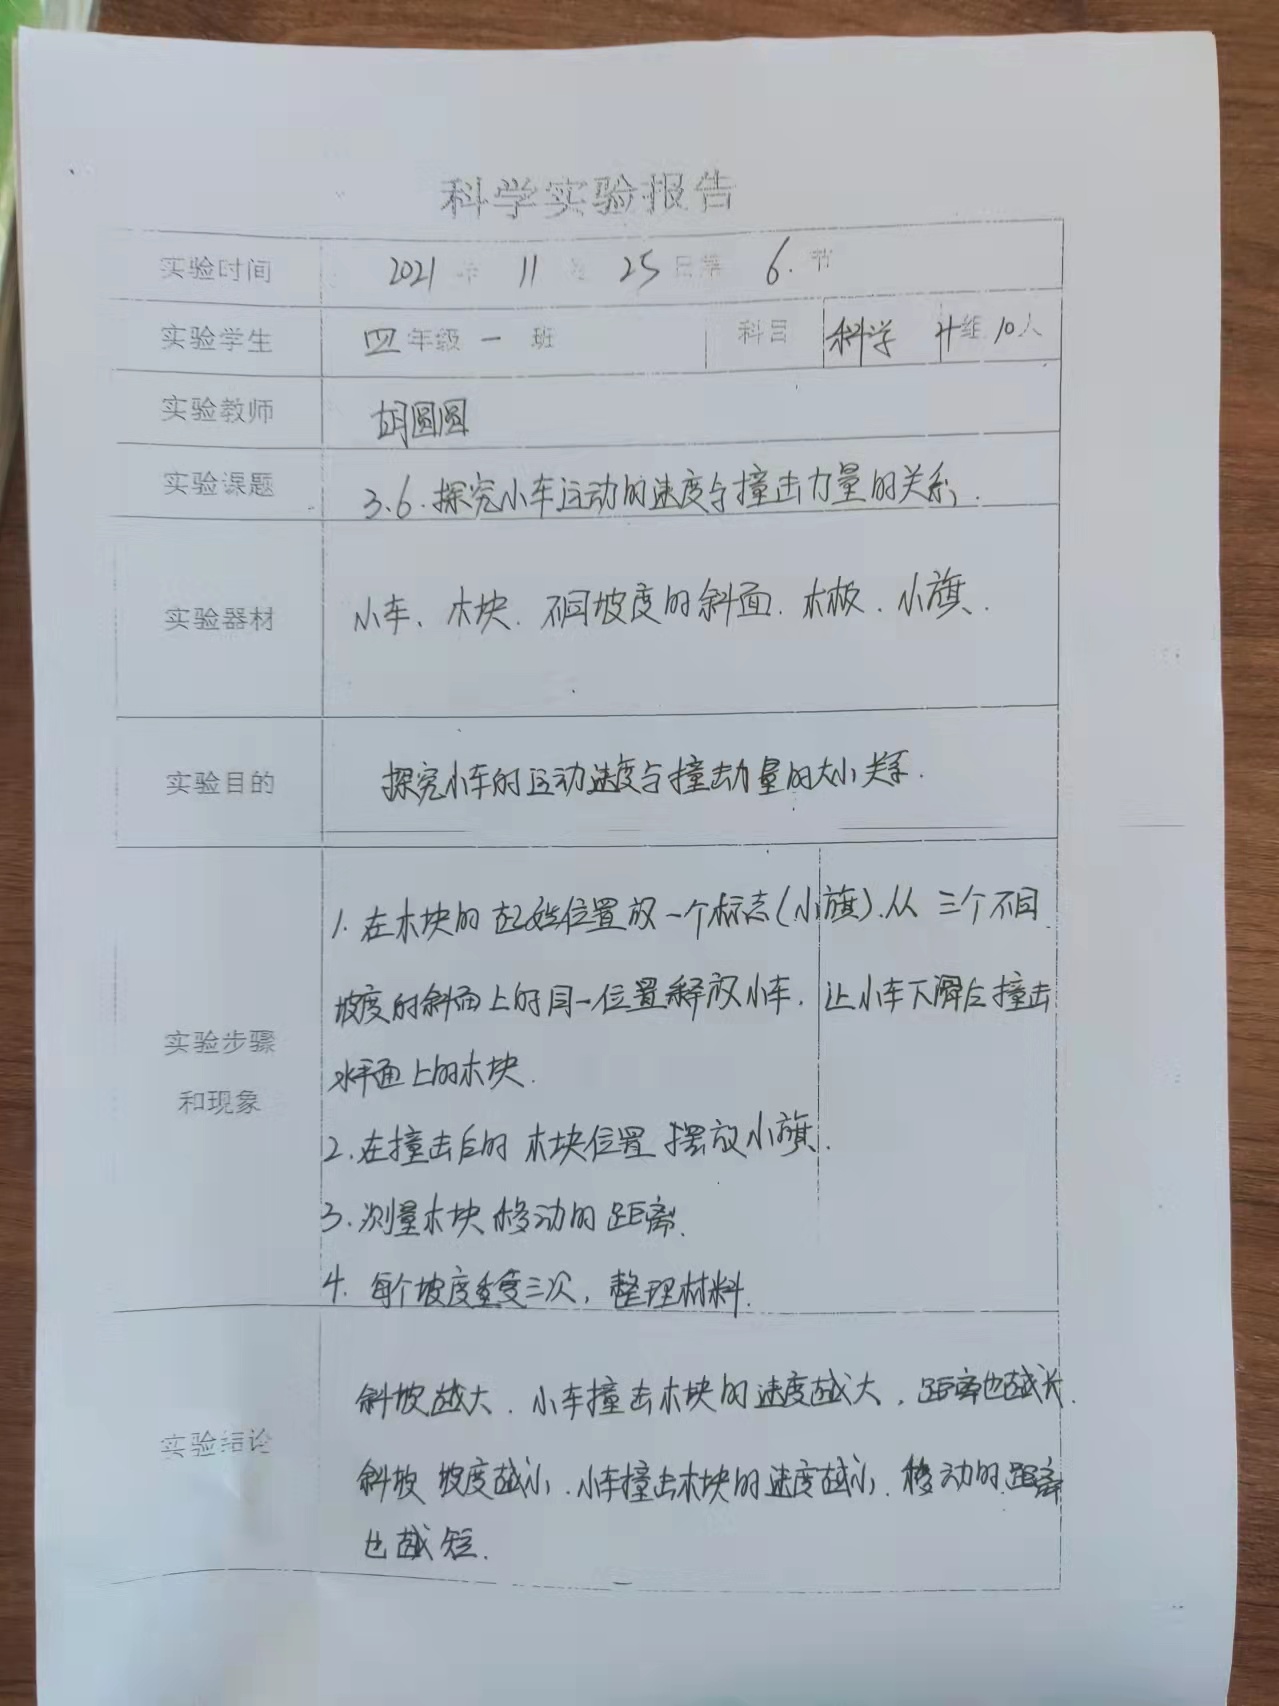 科学实验报告
实验时间 2021 年 11 月 25 日第 6. 节
实验学生 四年级 一 班 科目 科学 组 10人
实验教师 胡圆圆
实验课题 3.6.探究小车运动的速度与撞击力量的关系.
实验器材 小车、木块.不同坡度的斜面.木板.小旗.
实验目的 探究小车的运动速度与撞击力量的大小关系.
1.在木块的起始位置放一个标志(小旗).从三个不同
坡度的斜面上的同一位置释放小车.让小车下滑后撞击
实验步骤
水平面上的木块.
和现象
2.在撞击后的木块位置摆放小旗.
3.测量木块移动的距离.
4.每个坡度重复三次,整理材料.
斜坡越大.小车撞击木块的速度越大,距离也越长.
实验结论
斜坡坡度越小.小车撞击木块的速度越小.移动的距离
也越短.